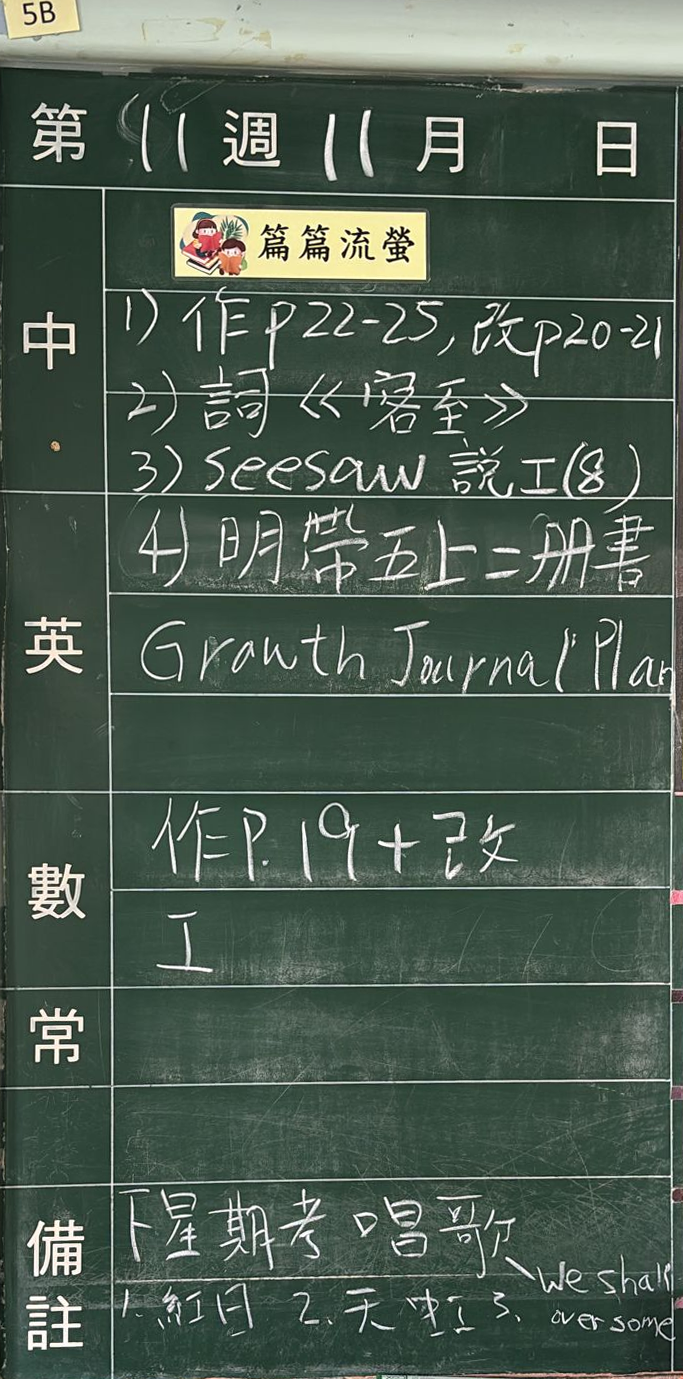 5B
第 11 週 11 月 日
篇篇流螢
中
1) 作 p 22-25, 改p20-21
2) 詞《客至》
3) seesaw 說工(8)
英
4) 明帶五上二册書
Growth Journal Plan
數
作P. 19 + 改
工
常
備註
下星期考 唱歌
1. 紅日 2. 天 3.
We shall
over some